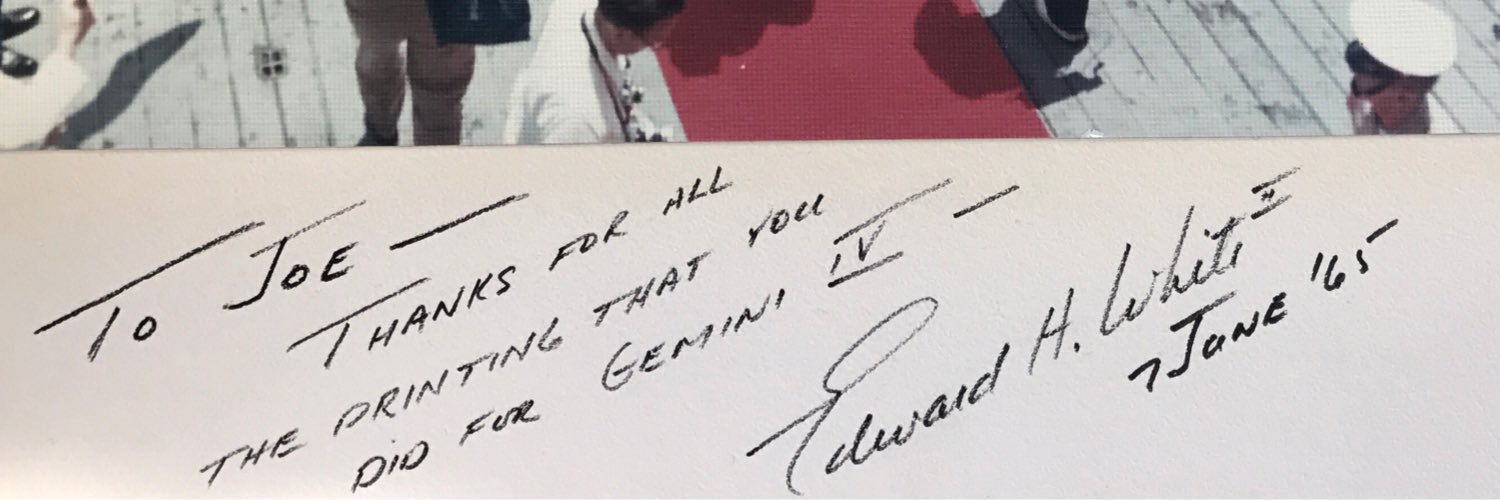 To JOE —
THANKS FOR ALL
THE PRINTING THAT YOU
DID FOR GEMINI IV —
Edward H. White II
7 JUNE '65